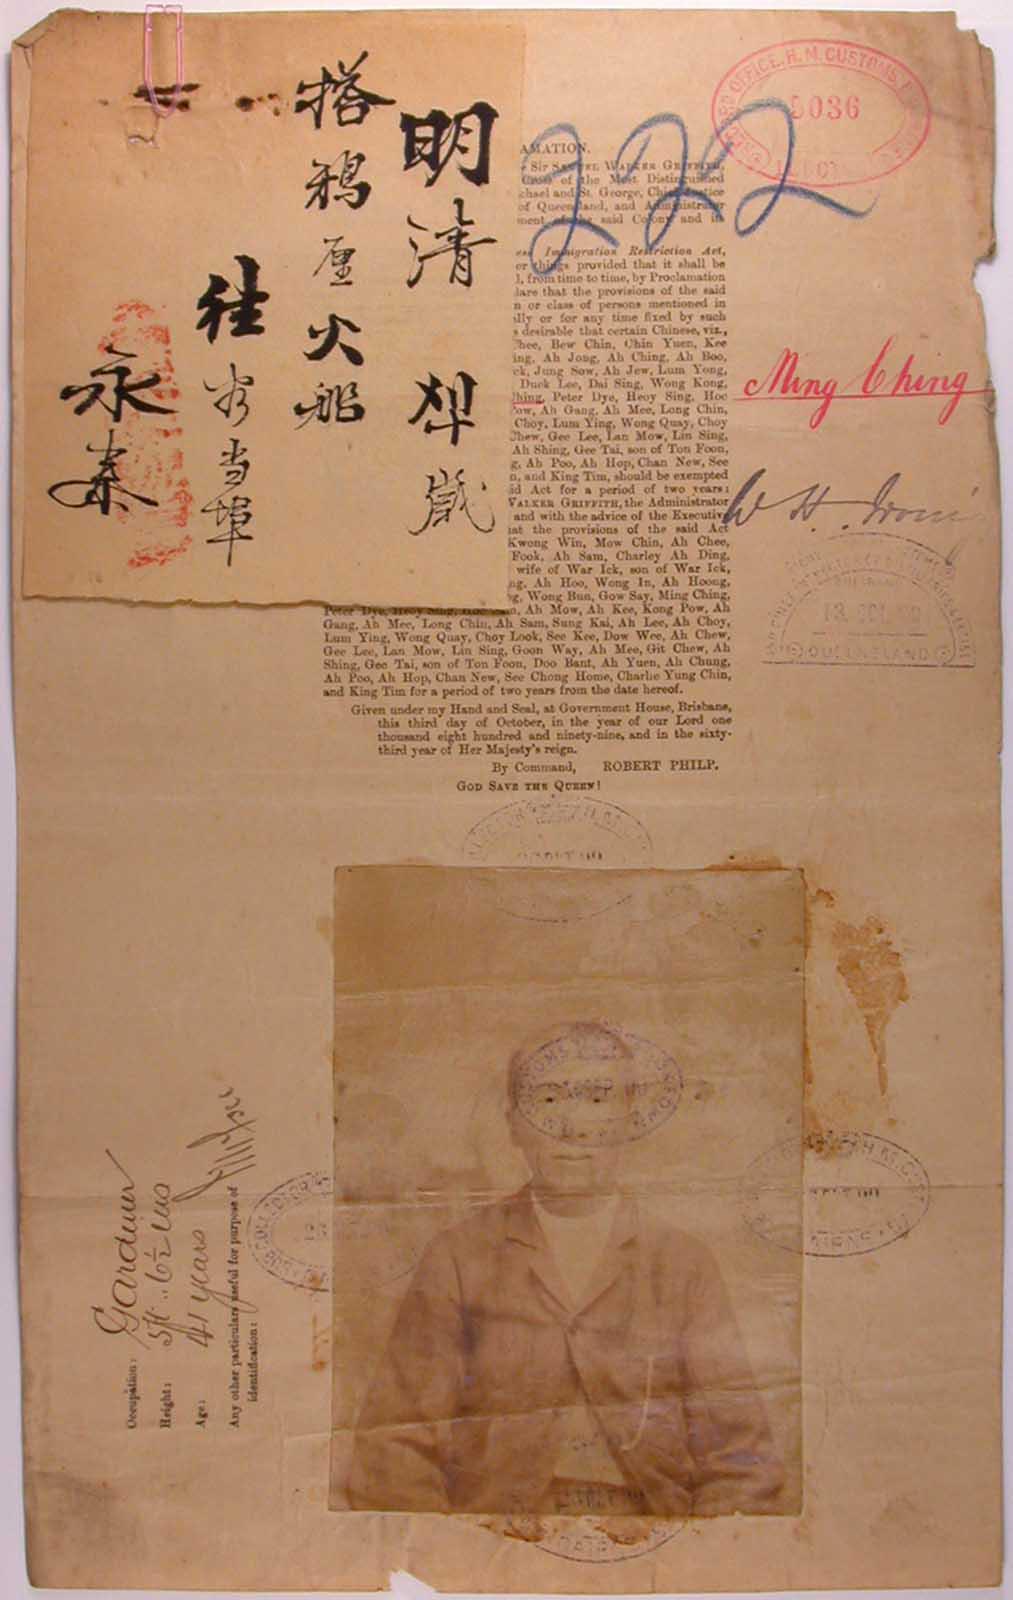 明清 犁歲
搭鴉厘火船
往
客当埠
永泰
222
OFFICE, H. M. CUSTOMS,
5036
AMATION.
Sir SAMUEL WALKER GRIFFITH,
Cross of the Most Distinguished
chael and St. George, Chief Justice
of Queensland, and Administrator
ment of the said Colony and its
Immigration Restriction Act,
or things provided that it shall be
from time to time, by Proclamation
lare that the provisions of the said
n or class of persons mentioned in
lly or for any time fixed by such
s desirable that certain Chinese, viz.,
hee, Bew Chin, Chin Yuen, Kee
ing, Ah Jong, Ah Ching, Ah Boo,
ck, Jung Sow, Ah Jew, Lum Yong,
Duck Lee, Dai Sing, Wong Kong,
hing, Peter Dye, Heoy Sing, Hoc
ow, Ah Gang, Ah Mee, Long Chin,
Choy, Lum Ying, Wong Quay, Choy
Chew, Gee Lee, Lan Mow, Lin Sing,
Ah Shing, Gee Tai, son of Ton Foon,
g, Ah Poo, Ah Hop, Chan New, See
n, and King Tim, should be exempted
id Act for a period of two years:
WALKER GRIFFITH, the Administrator
and with the advice of the Executive
at the provisions of the said Act
Kwong Win, Mow Chin, Ah Chee,
Fook, Ah Sam, Charley Ah Ding,
wife of War Ick, son of War Ick,
ng, Ah Hoo, Wong In, Ah Hoong,
g, Wong Bun, Gow Say, Ming Ching,
Peter Dye, Heoy Sing, Hoc San, Ah Mow, Ah Kee, Kong Pow, Ah
Gang, Ah Mee, Long Chin, Ah Sam, Sung Kai, Ah Lee, Ah Choy,
Lum Ying, Wong Quay, Choy Look, See Kee, Dow Wee, Ah Chew,
Gee Lee, Lan Mow, Lin Sing, Goon Way, Ah Mee, Git Chew, Ah
Shing, Gee Tai, son of Ton Foon, Doo Bant, Ah Yuen, Ah Chung,
Ah Poo, Ah Hop, Chan New, See Chong Home, Charlie Yung Chin,
and King Tim for a period of two years from the date hereof.
Given under my Hand and Seal, at Government House, Brisbane,
this third day of October, in the year of our Lord one
thousand eight hundred and ninety-nine, and in the sixty-
third year of Her Majesty's reign.
By Command, ROBERT PHILP.
GOD SAVE THE QUEEN!
Ming Ching
W H Irving
QUEENSLAND
Occupation: Gardiner
Height: 5 ft .. 6 1/2 ins
Age: 41 years
Any other particulars useful for purpose of
identification: